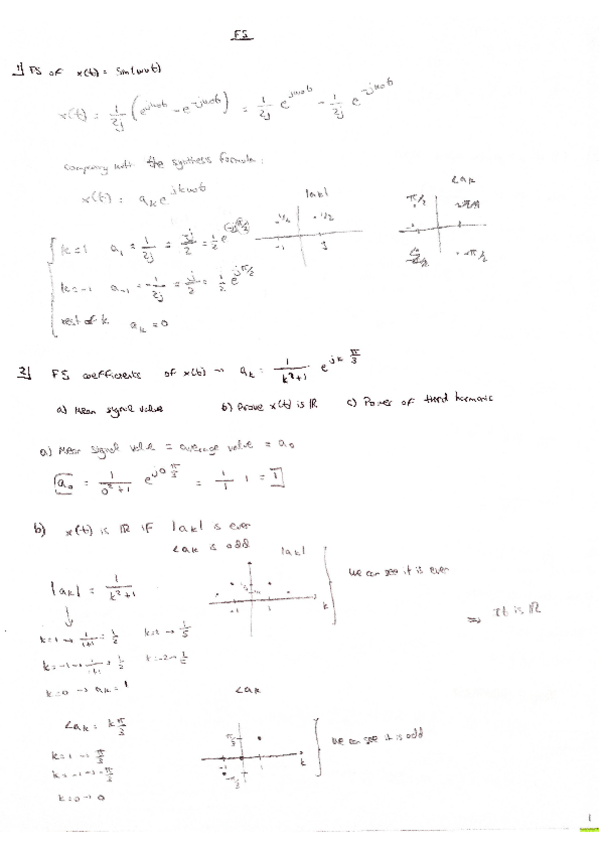 FS
1) FS of x(t) = sin(ω0t)
x(t) = 1/2j (e^jω0t - e^-jω0t) = 1/2j e^jω0t - 1/2j e^-jω0t
the synthesis formula:
x(t) = ak e^jkω0t
|ak|
<ak
π/2
1/2 1/2
-1 1
-π/2
k=1 a1 = 1/2j = = 1/2 e
k=-1 a-1 = -1/2j = j/2 = 1/2 e^jπ/2
rest of k ak = 0
2) FS coefficients of x(t) → ak = 1/(k²+1) e^jk π/3
a) Mean signal value b) Prove x(t) is ℝ c) Power of third harmonic
a) Mean signal value = average value = a0
a0 = 1/(0²+1) e^j0 π/3 = 1/1 1 = 1
b) x(t) is ℝ if |ak| is even
<ak is odd
|ak|
we can see it is even
|ak| = 1/(k²+1)
-1 1 k
⇒ xt is ℝ
k=1 → 1/(1+1) = 1/2 k=2 → 1/5
k=-1 → 1/(1+1) = 1/2 k=-2 → 1/5
k=0 → ak = 1
<ak
<ak = k π/3
π/3
-1 1 k
-π/3
we can see it is odd
k=1 → π/3
k=-1 → -π/3
k=0 → 0
1